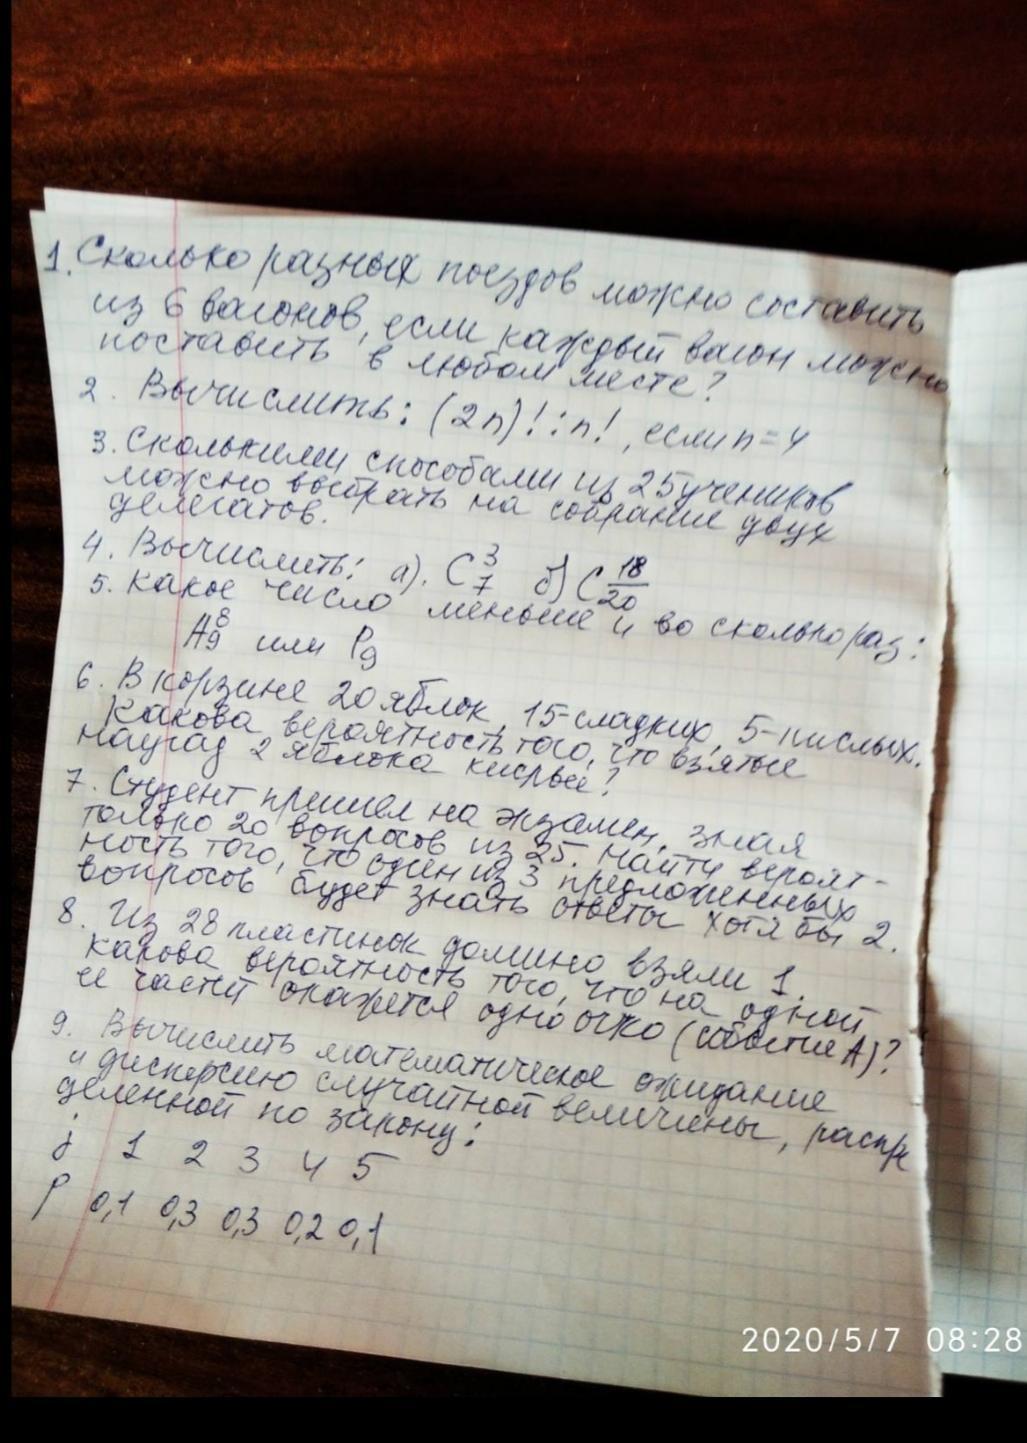 1. Сколько разных поездов можно составить
из 6 вагонов, если каждый вагон можно
поставить в любом месте?
2. Вычислить: (2n)! : n!, если n=4
3. Сколькими способами из 25 учеников
можно выбрать на собрание двух
делегатов.
4. Вычислить: а). C₇³ б) C₂₀¹⁸
5. Какое число меньше и во сколько раз:
A₉⁸ или P₉
6. В корзине 20 яблок, 15-сладких, 5-кислых.
Какова вероятность того, что взятые
наугад 2 яблока кислые?
7. Студент пришел на экзамен, зная
только 20 вопросов из 25. Найти вероят-
ность того, что один из 3 предложенных
вопросов будет знать ответы хотя бы 2.
8. Из 28 пластинок домино взяли 1.
Какова вероятность того, что на одной
её части окажется одно очко (событие A)?
9. Вычислить математическое ожидание
и дисперсию случайной величены, распре
деленной по закону:
j 1 2 3 4 5
P 0,1 0,3 0,3 0,2 0,1
2020/5/7 08:28